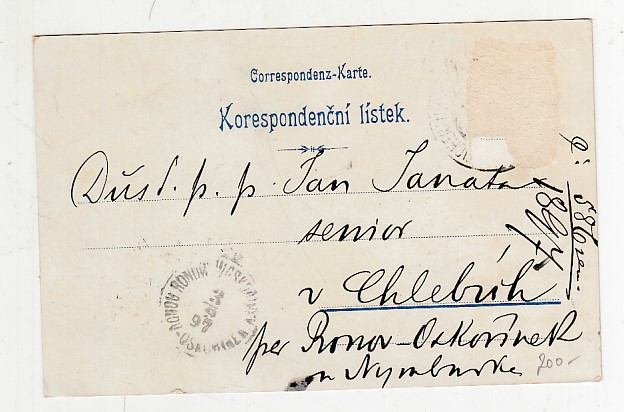 Correspondenz-Karte.
Korespondenční lístek.
Důst. p. p. Jan Janata
senior
v Chlebích
per Ronov-Oskořínek
u Nymburka
1897.
200-